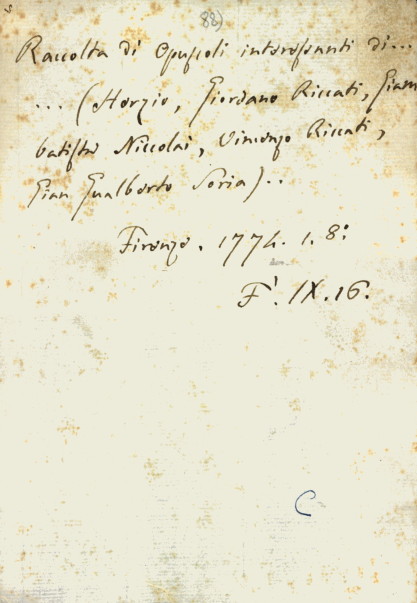 88)
Raccolta di Opuscoli interessanti di...
... (Horzio, Giordano Riccati, Giam
batista Niccolai, Vincenzo Riccati,
Gian Gualberto Soria)..
Firenze. 1774. 1. 8º
F'. IX. 16.
C